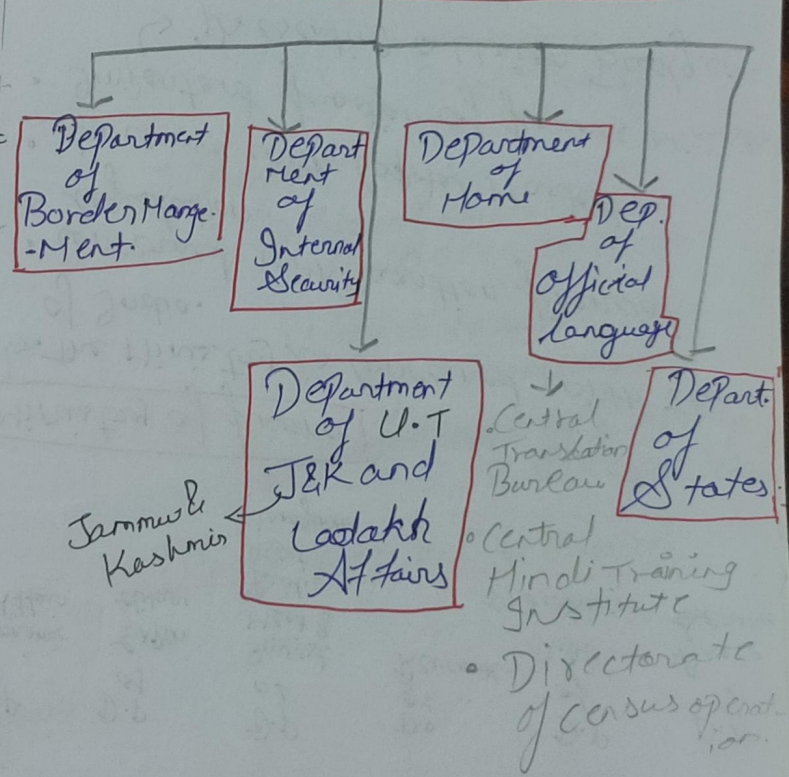 Department
of
Border Mange.
-Ment.
Depart
ment
of
Internal
Security
Department
of
Home
Dep.
of
official
language
Department
of U.T
J&K and
Ladakh
Affairs
Jammu &
Kashmir
Depart.
of
States.
• Central
Translation
Bureau
• Central
Hindi Training
Institute
• Directorate
of census operat-
ion.